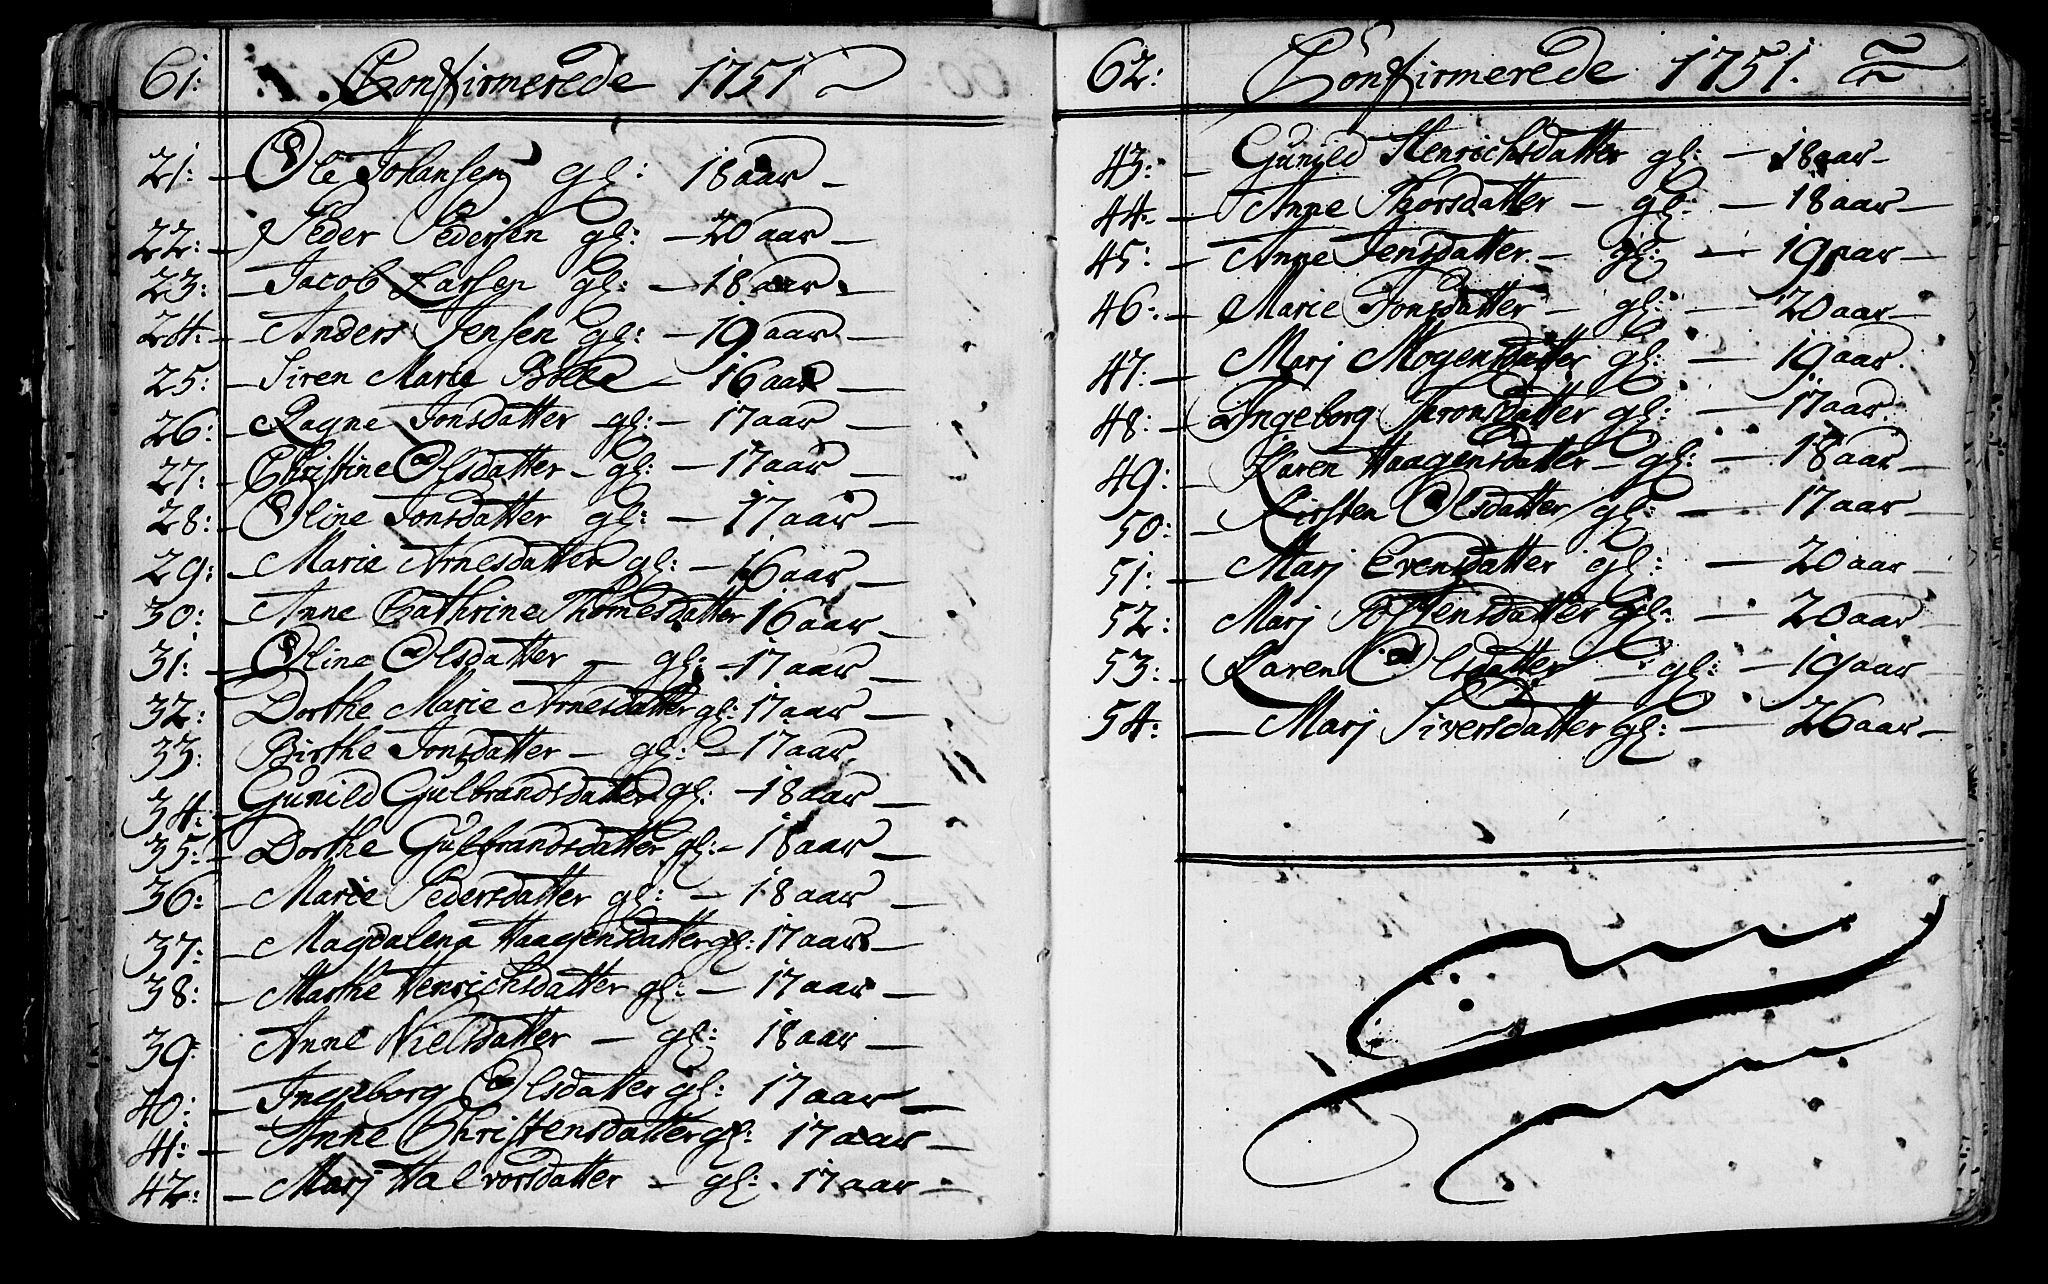 61:
Confirmerede 1751
21: – Ole Johansen gl: 18 aar –
22: – Peder Pedersen gl: – 20 aar –
23: – Jacob Larsen gl: – 18 aar –
24: – Anders Jensen gl: – 19 aar –
25: – Siren Marie – 16 aar –
26: – Ragne Jonsdatter gl: – 17 aar –
27: – Christine Olsdatter – gl: – 17 aar –
28: – Oline Jonsdatter gl: – 17 aar –
29: – Marie Arnesdatter gl: – 16 aar –
30: – Anne Cathrine Thomesdatter 16 aar –
31: – Oline Olsdatter – gl: – 17 aar –
32: – Dorthe Marie Arnesdatter gl: 17 aar –
33: Birthe Jonsdatter – gl: – 17 aar
34: – Gunild Gulbrandsdatter gl: – 18 aar –
35: – Dorthe Gulbrandsdatter gl: – 18 aar –
36: – Marie Pedersdatter gl: – 18 aar –
37: – Magdalena Haagensdatter gl: 17 aar –
38: – Marthe Henrichsdatter gl: – 17 aar –
39: Anne Nielsdatter – gl: 18 aar –
40: – Ingeborg Olsdatter gl: 17 aar –
41: – Anne Christensdatter gl: 17 aar –
42: – Marj Halvorsdatter – gl: 17 aar –
62:
Confirmerede 1751.
43: – Gunild Henrichsdatter gl: – 18 aar –
44: – Anne Thorsdatter – gl: – 18 aar –
45: – Anne Jensdatter – gl: – 19 aar –
46: – Marie Jonsdatter – gl: – 20 aar –
47: – Marj Mogensdatter gl: – 19 aar.
48: – Ingeborg Jaronsdatter gl: – 17 aar.
49: – Karen Haagensdatter – gl: – 18 aar –
50: – Kirsten Olsdatter gl: – 17 aar –
51: – Marj Evensdatter gl: – 20 aar –
52: Marj gl: – 20 aar
53: – Karen Olsdatter – gl: – 19 aar –
54: – Marj Siversdatter gl: – 26 aar –